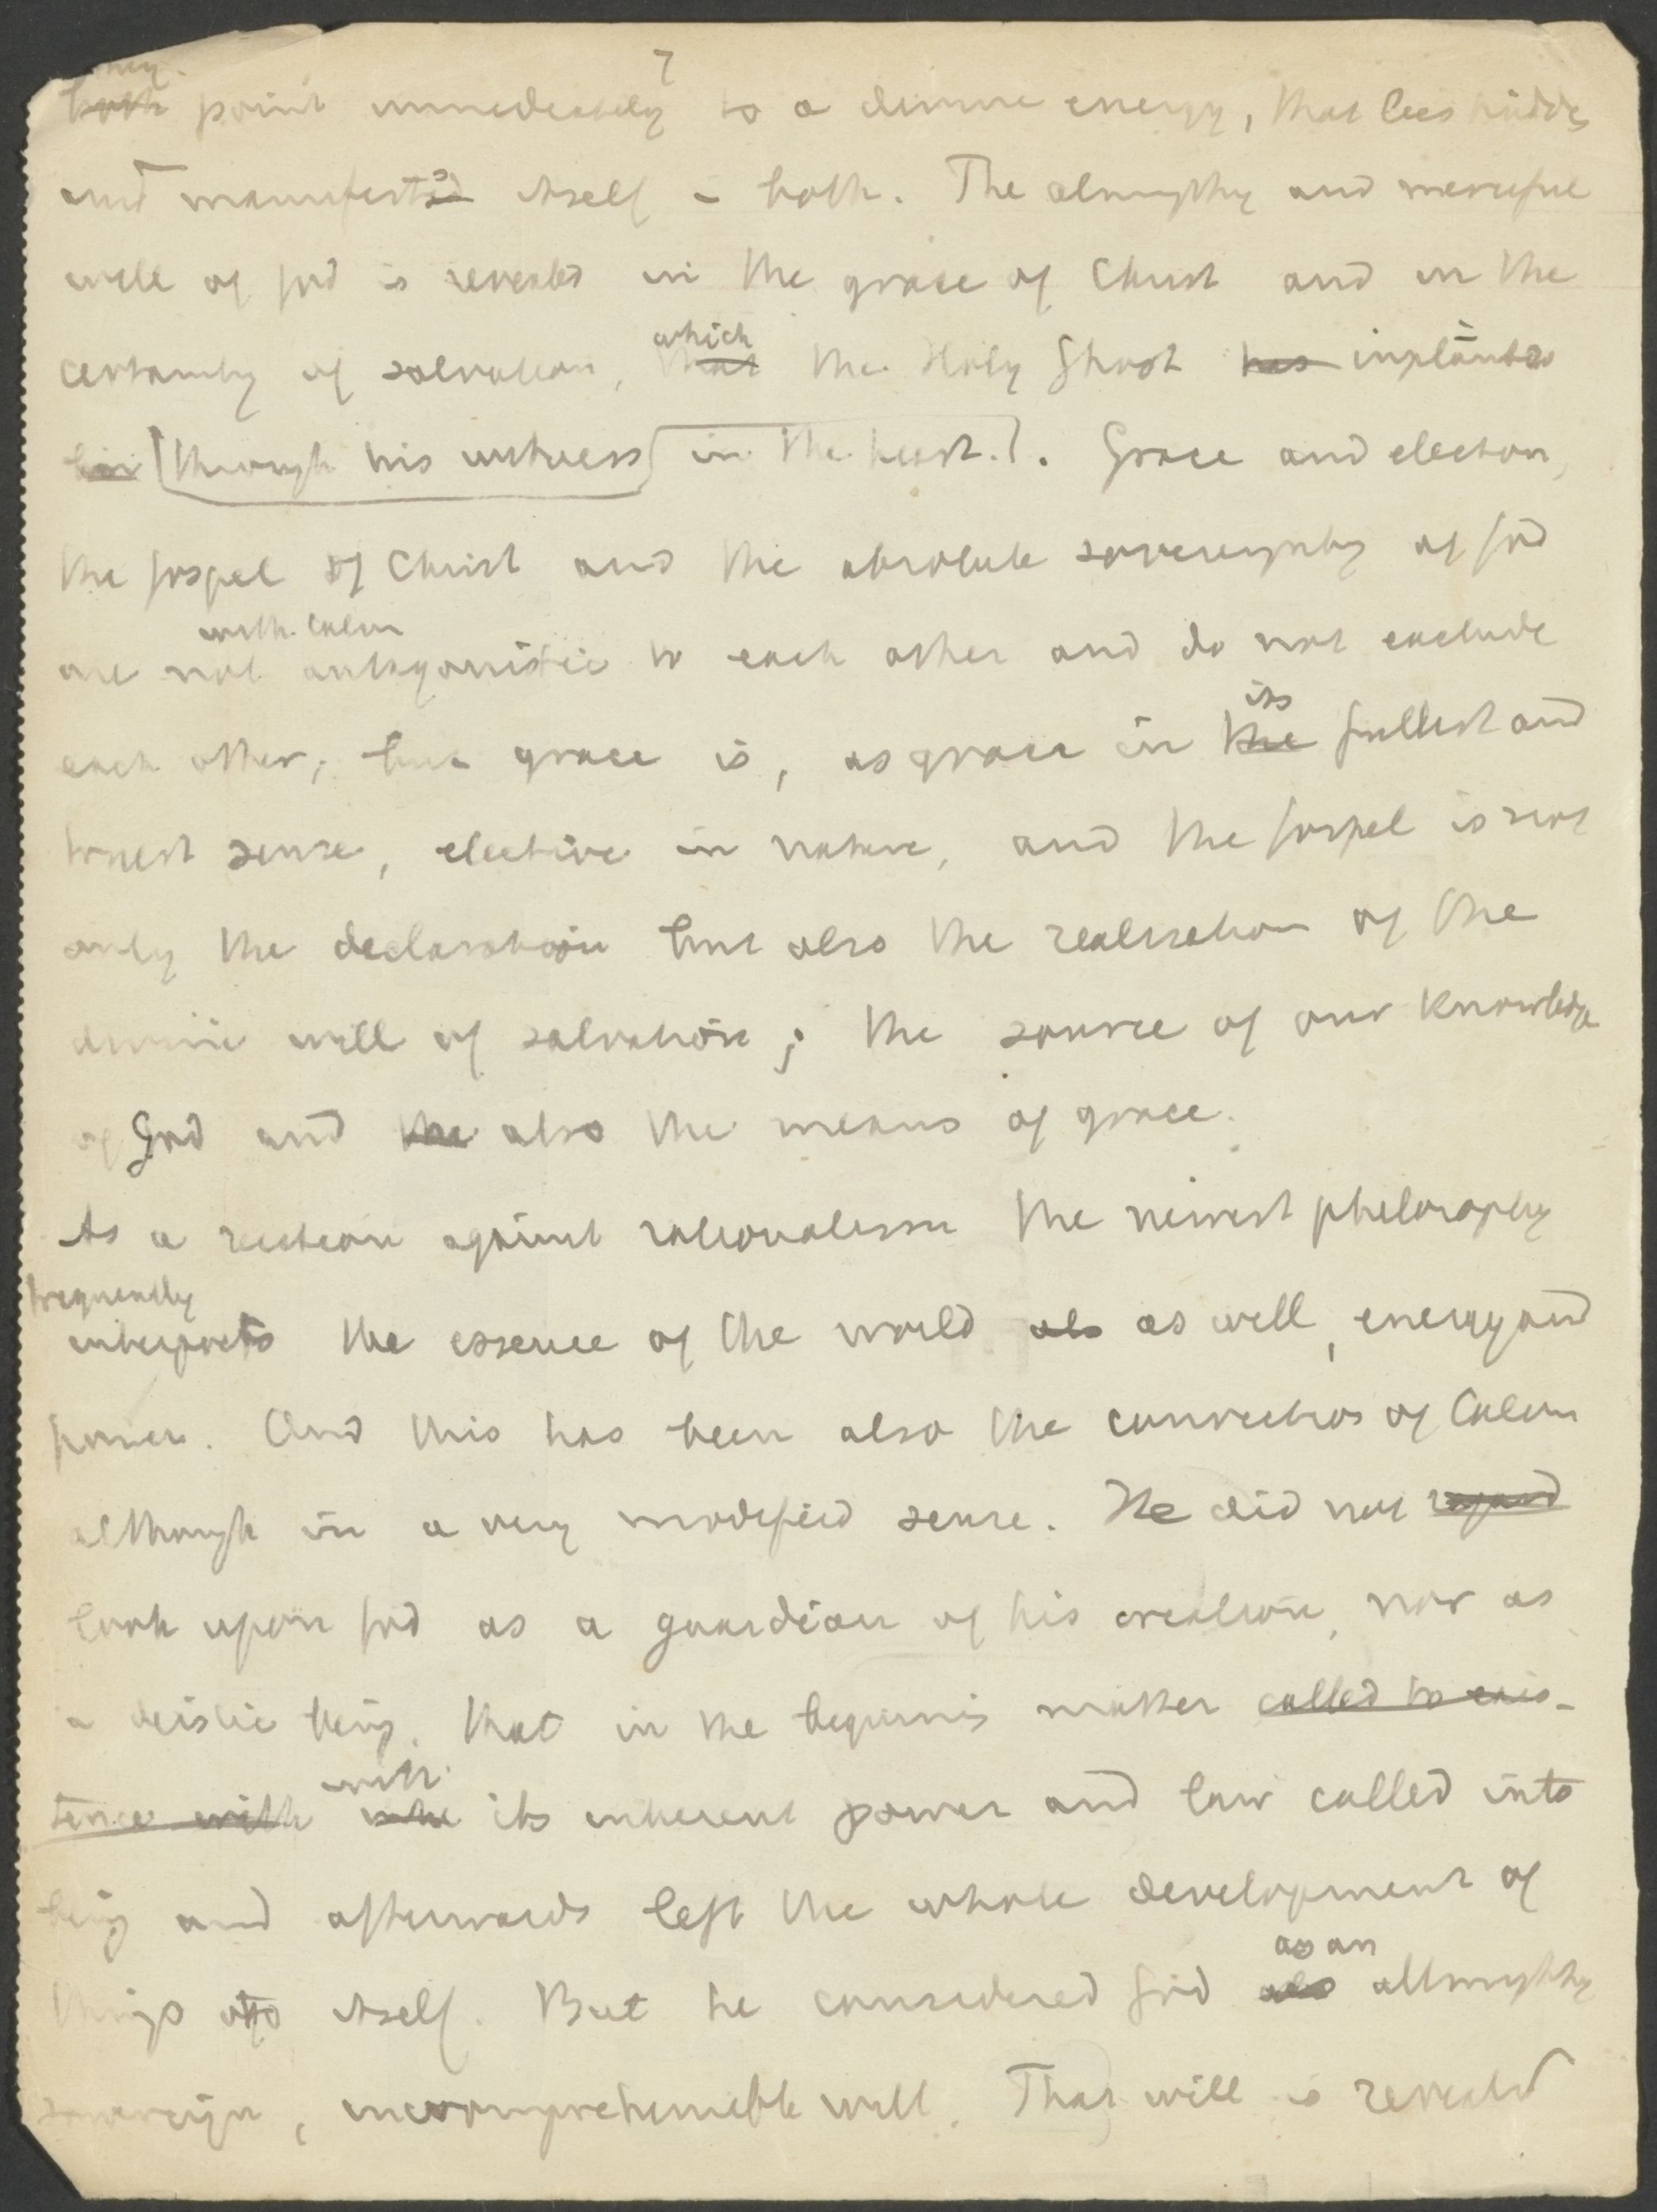 7
they
both point immediately to a divine energy, that lies hidden
and manifests itself in both. The almighty and merciful
will of God is revealed in the grace of Christ and in the
which
certainty of salvation, that the Holy Ghost has implants
him through his witness in the heart. Grace and election,
the Gospel of Christ and the absolute sovereignty of God
with Calvin
are not antagonistic to each other and do not exclude
its
each other; but grace is, as grace in the fullest and
truest sense, elective in nature, and the Gospel is not
only the declaration but also the realisation of the
divine will of salvation; the source of our knowledge
of God and the also the means of grace.
As a reaction against rationalism the newest philosophy
frequently
interprets the essence of the world als as will, energy and
power. And this has been also the conviction of Calvin
although in a very modified sense. He did not regard
look upon God as a guardian of his creation, nor as
a deistic being, that in the beginning matter called to exis-
with
tence with its inherent power and law called into
being and afterwards left the whole development of
as an
things to itself. But he considered God als allmighty
sovereign, incomprehensible will. That will is reveald